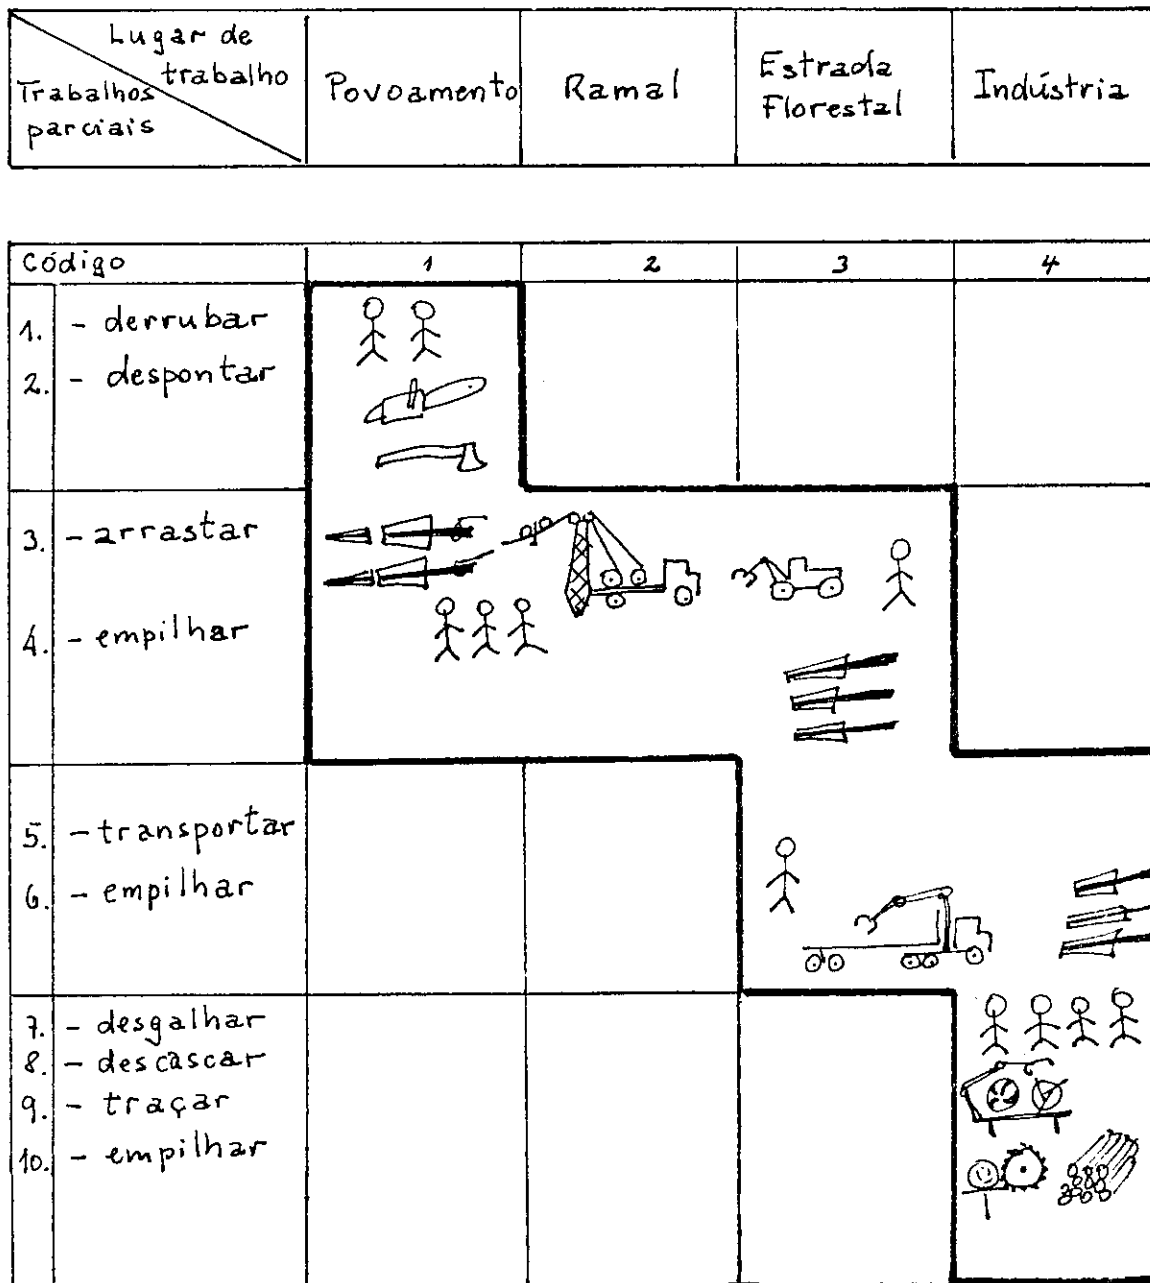 Lugar de
trabalho
Trabalhos
parciais
Povoamento
Ramal
Estrada
Florestal
Indústria
Código 1 2 3 4
1. - derrubar
2. - despontar
3. - arrastar
4. - empilhar
5. - transportar
6. - empilhar
7. - desgalhar
8. - descascar
9. - traçar
10. - empilhar